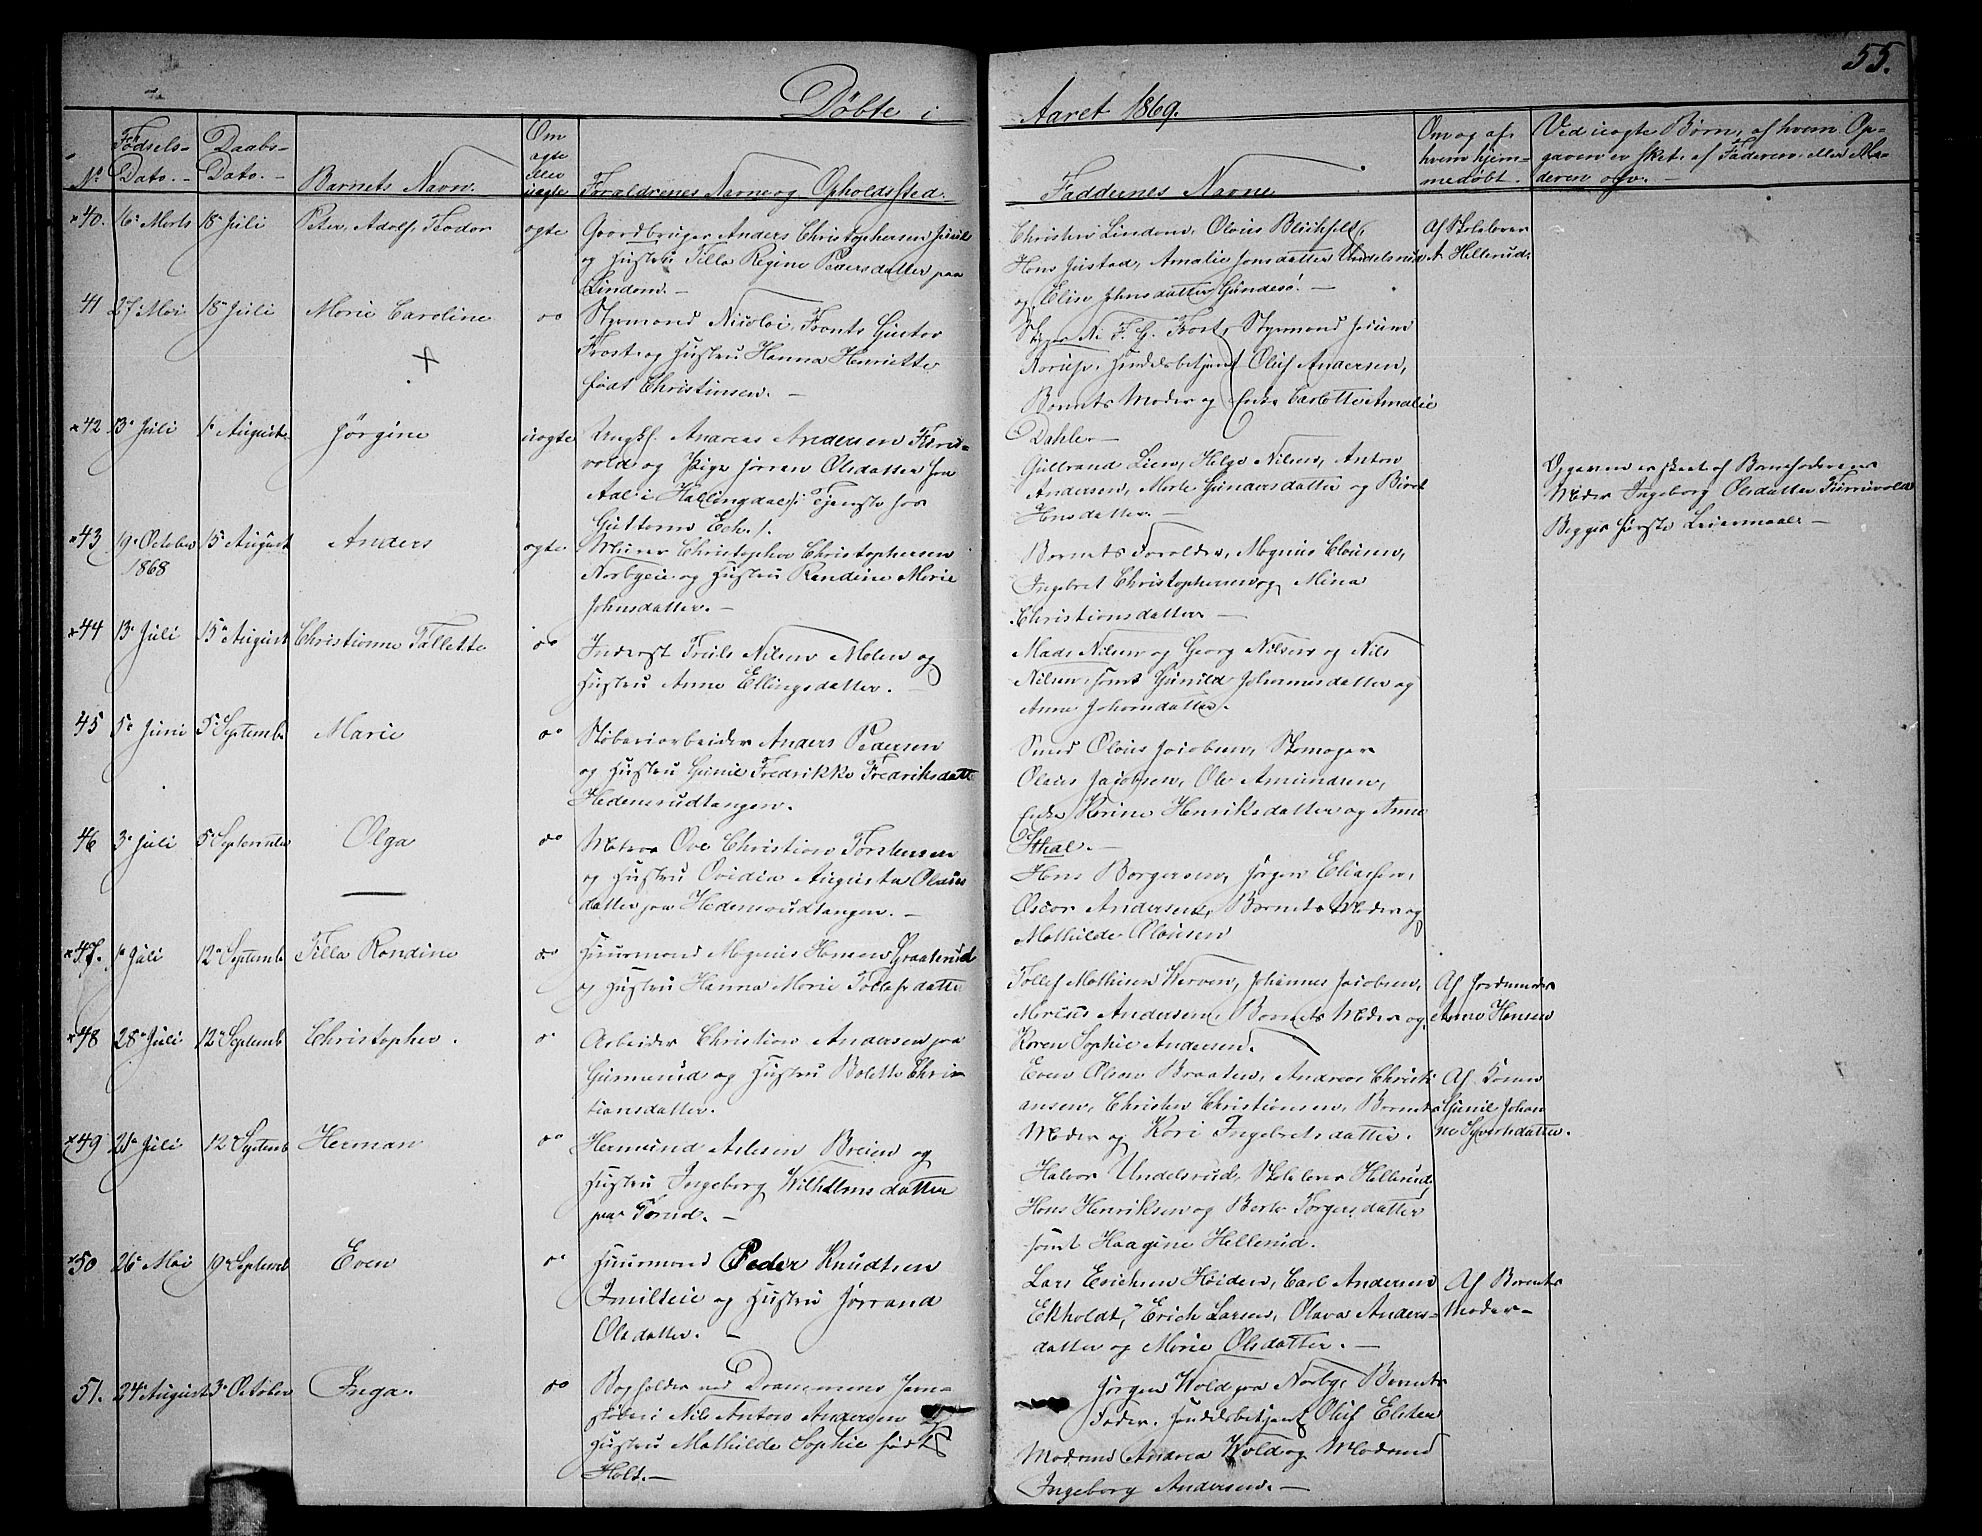 55.
Döbte i Aaret 1869.
No
Födsels-
Dato.-
Daabs-
Dato.-
Barnets Navn.
Om
ægte
eller
uægte
Forældrenes Navne og Opholdssted.
Faddernes Navne
Om og af
hvem hjem-
medøbt.
Ved uægte Børn, af hvem Op-
gaven er sket, af Faderen eller Mo-
deren o s v.-
40. 16 Marts 18 Juli Peter Adolf Teodor ægte Gaardbruger Anders Christophersen
og Hustru Tilla Regine Pedersdatter paa
Lindom.-
Christen Lindom, Olaus Blichfelt,
Hans Justad, Amalie Jonsdatter Undelsrud
og Elise Johnsdatter Gundesö.-
Af Skolelærer
A. Hellerud
41 27 Mai 18 Juli Marie Caroline do Styrmand Nicolai Frants Gustav
Frost og Hustru Hanna Henriette
född Christensen.-
N. F. G. Frost, Styrmand
Olaf Andersen,
Barnets Moder og Enke Carlotte Amalie
Dahler-
42 13 Juli 1 August Jörgine uægte Ungkf. Andreas Andersen
vold og Pige Jörren Olsdatter fra
Aal i Hallingdal, i Tjeneste hos
Guttorm Eck.
Gulbrand Lien, Helge Nilsen, Anton
Andersen, Marte Gundersdatter og Birit
Hansdatter.-
Opgaven er skeet af Barnefaderens
Moder Ingeborg Olsdatter Furuvold
Begges første Leiermaal-
43 19 October
1868 15 August Anders ægte Murer Christopher Christophersen
Norbyeie og Hustru Randine Marie
Johnsdatter.-
Barnets Forældre, Magnus Clausen,
Ingebret Christophersen og Mina
Christiansdatter-
44 13 Juli 15 August Christianne Tallette do Inderst Truls Nilsen Molen og
Hustru Anne Ellingsdatter.-
Mads Nilsen og Georg Nilsen og Nils
Nilsen, samt Gunild Johannesdatter og
Anne Johannsdatter.
45 5 Juni 5 Septemb Marie do Støberiarbeider Anders Pedersen
og Hustru Gunil Fredrikke Fredriksdatt
Hedensrudtangen.
Smed Olaus Jacobsen, Skomager
Olaus Jacobsen, Ole Amundsen,
Enke Karine Henriksdatter og Anne
Sthal.-
46 3 Juli 5 September Olga do Matros Ove Christian Torstensen
og Hustru Ovidia Augusta Olaus
datter paa Hedensrudtangen.-
Hans Borgersen, Jörgen Eliasen,
Oscar Andersen, Barnets Moder og
Mathilde Olausen
47. 1 Juli 12 Septemb Tilla Randine do Huusmand Magnus Hansen Graaterud
og Hustru Hanna Marie Tollefsdatter
Tollef Mathisen Werven, Johannes Jacobsen,
Marius Andersen, Barnets Moder og
Karen Sophie Andersen.
Af Jordemoder
Anne Hansen
48 28 Juli 12 Septemb Christopher. do Arbeider Christian Andersen paa
Gunnerud og Hustru Bolette Chris
tiansdatter.
Even Olsen Braaten, Andreas Christi
ansen, Christen Christiansen, Barnets
Moder og Kari Ingebretsdatter.
Af Konen
Gunil Johan
ne Syvertsdatter.
49 21 Juli 12 Septemb Herman do Hermund Aslesen Breien og
Hustru Ingeborg Wilhelmsdatter
paa Tørud.-
Halvor Undelsrud, Skolelærer Hellerud,
Hans Henriksen og Berte Torgersdatter
samt Haagine Hellerud.
50 26 Mai 19 Septemb Even do Huusmand Peder Knudtsen
Smilteie og Hustru Jørrand
Olsdatter.-
Lars Erichsen Heiden, Carl Andersen
Ekholdt, Erich Larsen, Olava Anders-
datter og Marie Olsdatter.-
Af Barnets
Moder-
51. 24 August 3 October Inga. do Bogholder ved Drammens Jern-
støberi Nils Anton Andersen og
Hustru Mathilde Sophie født
Holt.-
Jörgen Wold paa Norby, Barnets
Fader, Olaf Elsten
Madame Andrea Wold og Madame
Ingeborg Andersen.-